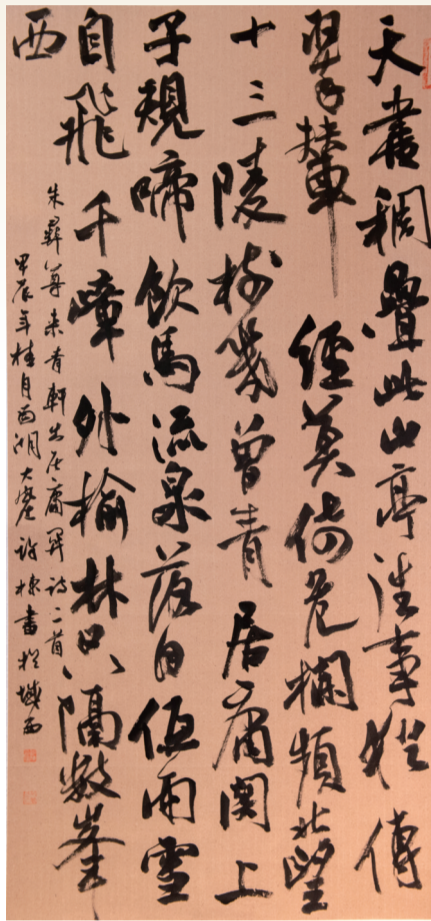 天書稠疊此山亭往事猶傳
翠輦經莫倚危欄頻北望
十三陵樹幾曾青居庸関上
子規啼飲馬流泉落日低雨雪
自飛千嶂外榆林只隔數峯
西
朱彝尊来青軒出居庸関詩二首
甲辰年桂月西湖大麓許書於城西